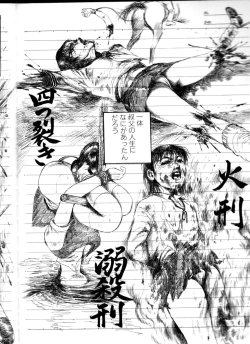 四つ裂き
一体
叔父の人生に
なにがあったん
だろう
火刑
溺殺刑